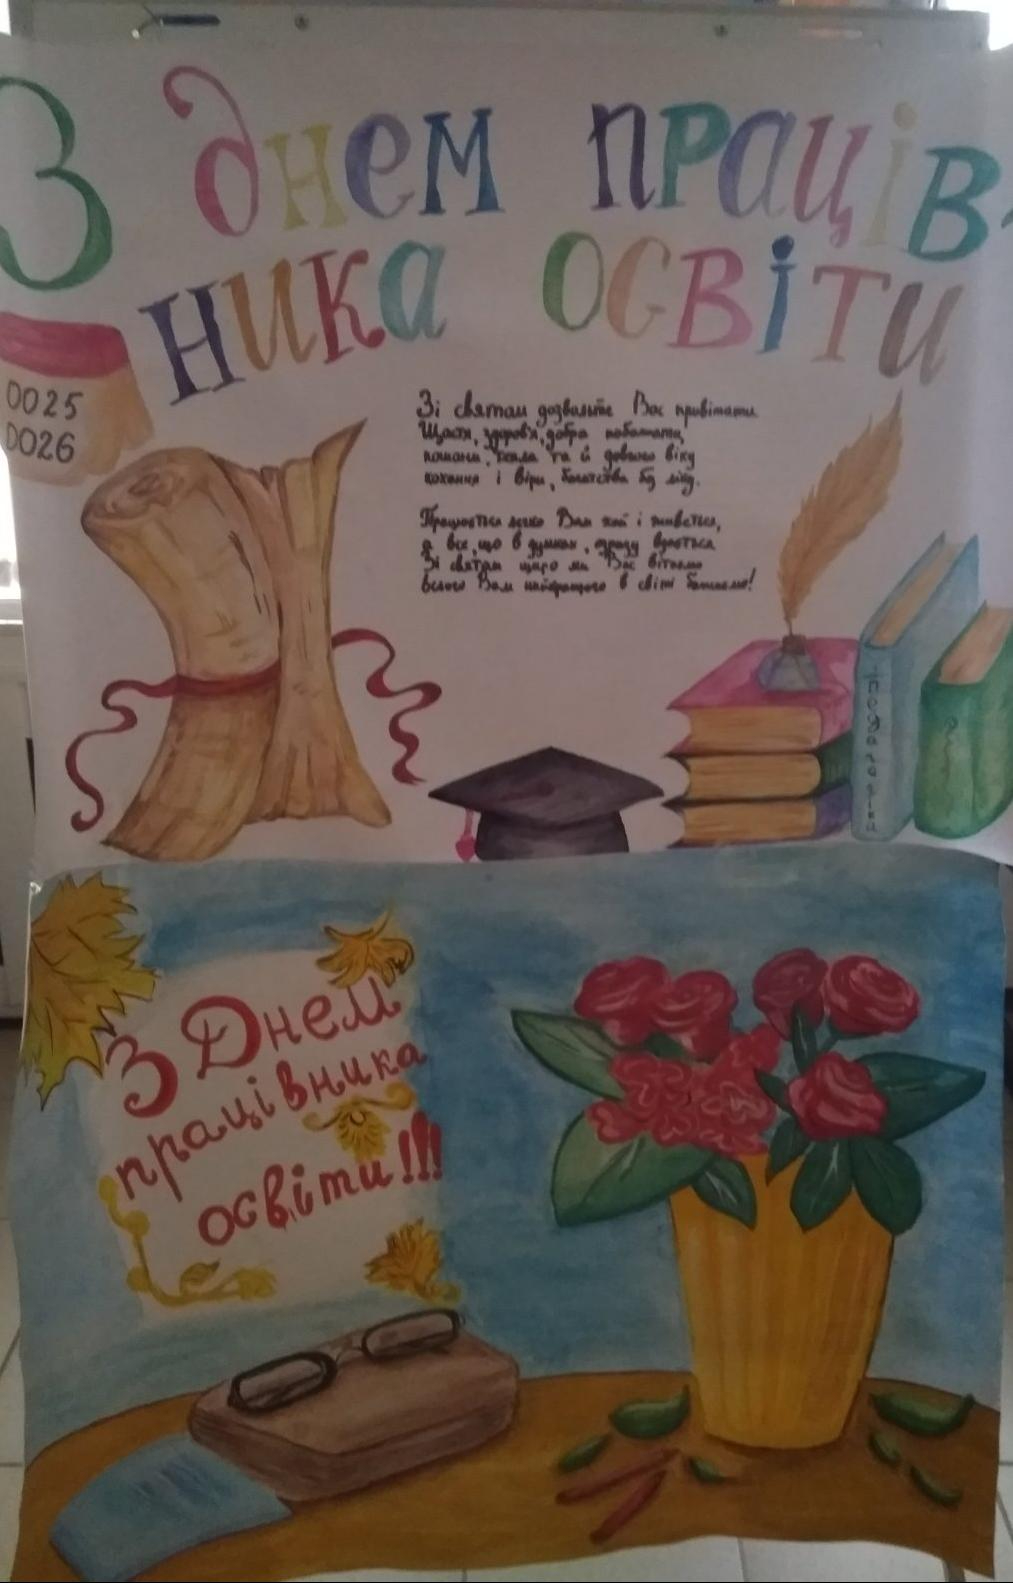 З днем праців-
ника освіти
DO25
DO26
Зі святом дозвольте Вас привітати
Щастя, здоров'я, добра побажати,
тепла та й довгого віку
кохання і віри, багатства без ліку.
Працюється легко Вам хай і живеться,
а все, що в думках, одразу вдається
Зі святом щиро ми Вас вітаємо
всього Вам найкращого в світі бажаємо!
Педагогіка
З Днем
працівника
освіти!!!